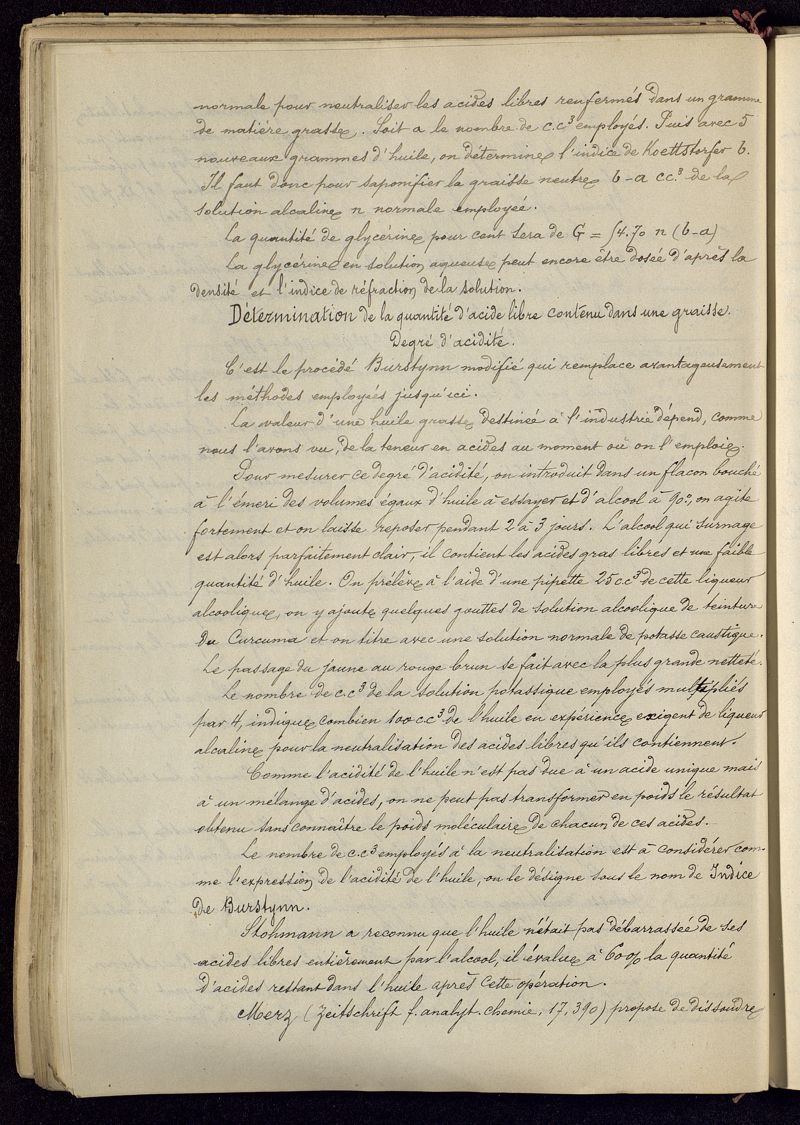 normale pour neutraliser les acides libres renfermés dans un gramme
de matière grasse. Soit a le nombre de c.c³ employés. Puis avec 5
nouveaux grammes d'huile, on détermine l'indice de Koettstorfer b.
Il faut donc pour saponifier la graisse neutre b-a cc.³ de la
solution alcaline n normale employée.
La quantité de glycérine pour cent sera de G = 54.70 n (b-a)
La glycérine en solution aqueuse peut encore être dosée d'après la
densité et l'indice de réfraction de la solution.
Détermination de la quantité d'acide libre contenu dans une graisse.
Degré d'acidité.
C'est le procédé Burstynn modifié qui remplace avantageusement
les méthodes employés jusqu'ici.
La valeur d'une huile grasse destinée à l'industrie dépend, comme
nous l'avons vu, de la teneur en acides au moment où on l'emploie.
Pour mesurer ce degré d'acidité, on introduit dans un flacon bouché
à l'émeri des volumes égaux d'huile à essayer et d'alcool à 90°, on agite
fortement et on laisse reposer pendant 2 à 3 jours. L'alcool qui surnage
est alors parfaitement clair, il contient les acides gras libres et une faible
quantité d'huile. On prélève à l'aide d'une pipette 25 cc³ de cette liqueur
alcoolique, on y ajoute quelques gouttes de solution alcoolique de teinture
du Curcuma et on titre avec une solution normale de potasse caustique.
Le passage du jaune au rouge brun se fait avec la plus grande netteté.
Le nombre de c.c³ de la solution potassique employés multipliés
par 4, indique combien 100 c.c³ de l'huile en expérience exigent de liqueur
alcaline pour la neutralisation des acides libres qu'ils contiennent.
Comme l'acidité de l'huile n'est pas due à un acide unique mais
à un mélange d'acides, on ne peut pas transformer en poids le résultat
obtenu sans connaître le poids moléculaire de chacun de ces acides.
Le nombre de c.c³ employés à la neutralisation est à considérer com-
me l'expression de l'acidité de l'huile, on le désigne sous le nom de Indice
de Burstynn.
Stohmann a reconnu que l'huile n'était pas débarrassée de ses
acides libres entièrement par l'alcool, il évalue à 60% la quantité
d'acides restant dans l'huile après cette opération.
Merz (Zeitschrift f. analyt. chemie, 17, 390) propose de dissoudre